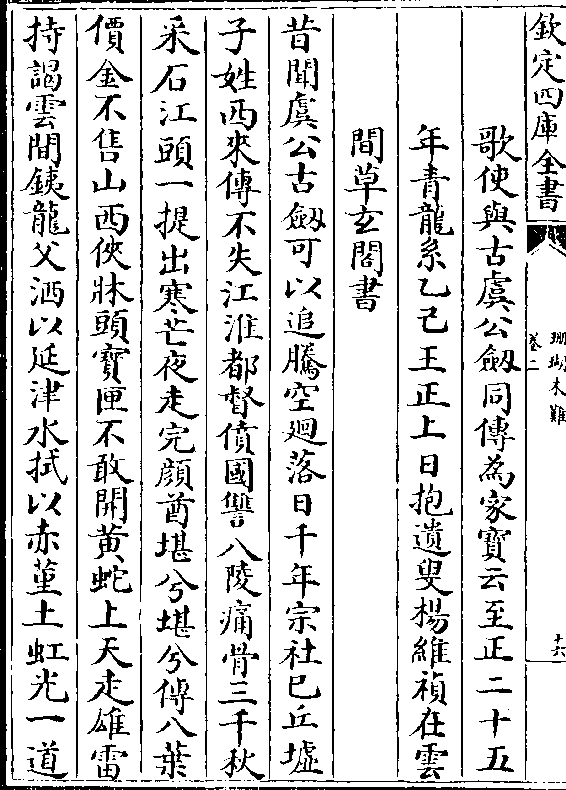 欽定四庫全書
珊瑚木難
卷二
十六
歌使與古虞公劔同傳為家寳云至正二十五
年青龍系乙己王正上日抱遺叟楊維禎在雲
間草玄閣書
昔聞虞公古劔可以追騰空廻落日千年宗社已丘墟
子姓西來傳不失江淮都督僨國讐八陵痛骨三千秋
采石江頭一提出寒芒夜走完顔酋堪兮堪兮傳八葉
價金不售山西俠牀頭寳匣不敢開黄蛇上天走雄雷
持謁雲間銕龍父洒以延津水拭以赤堇土虹光一道